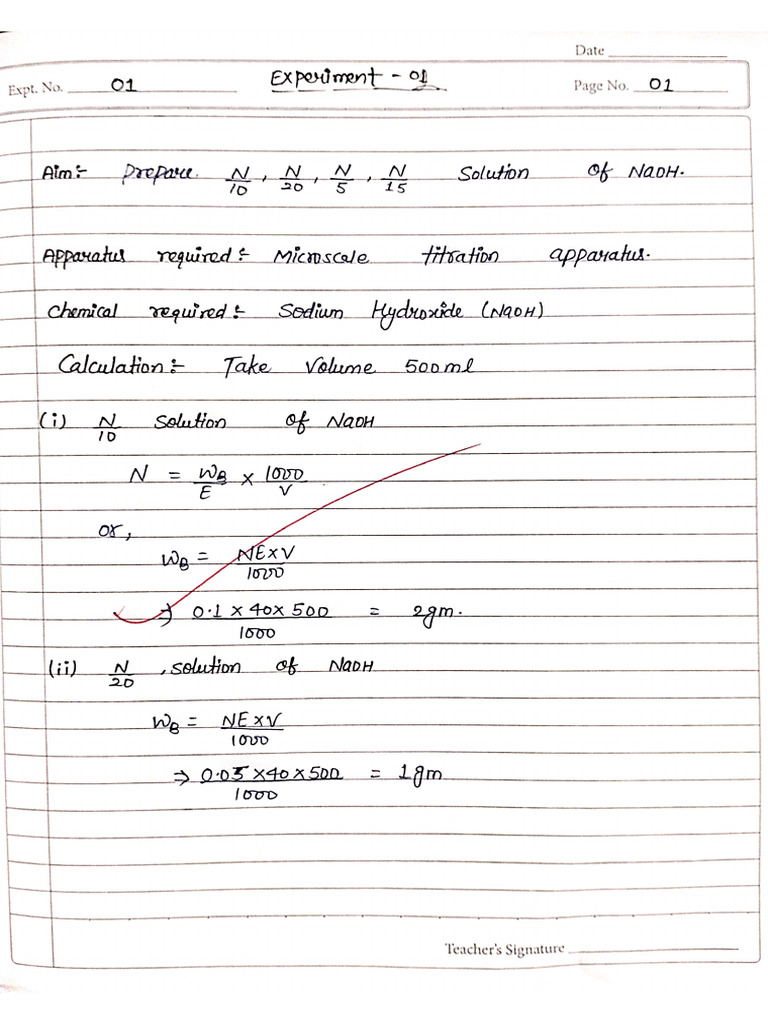 Date
Expt. No. 01 Experiment - 01 Page No. 01
Aim:- Prepare N/10, N/20, N/5, N/15 Solution of NaOH.
Apparatus required:- Microscale titration apparatus.
Chemical required:- Sodium Hydroxide (NaOH)
Calculation:- Take Volume 500ml
(i) N/10 Solution of NaOH
N = WB/E × 1000/V
or,
WB = NE×V/1000
⇒ 0.1 × 40 × 500/1000 = 2gm.
(ii) N/20, Solution of NaOH
WB = NE×V/1000
⇒ 0.05 ×40×500/1000 = 1gm
Teacher's Signature